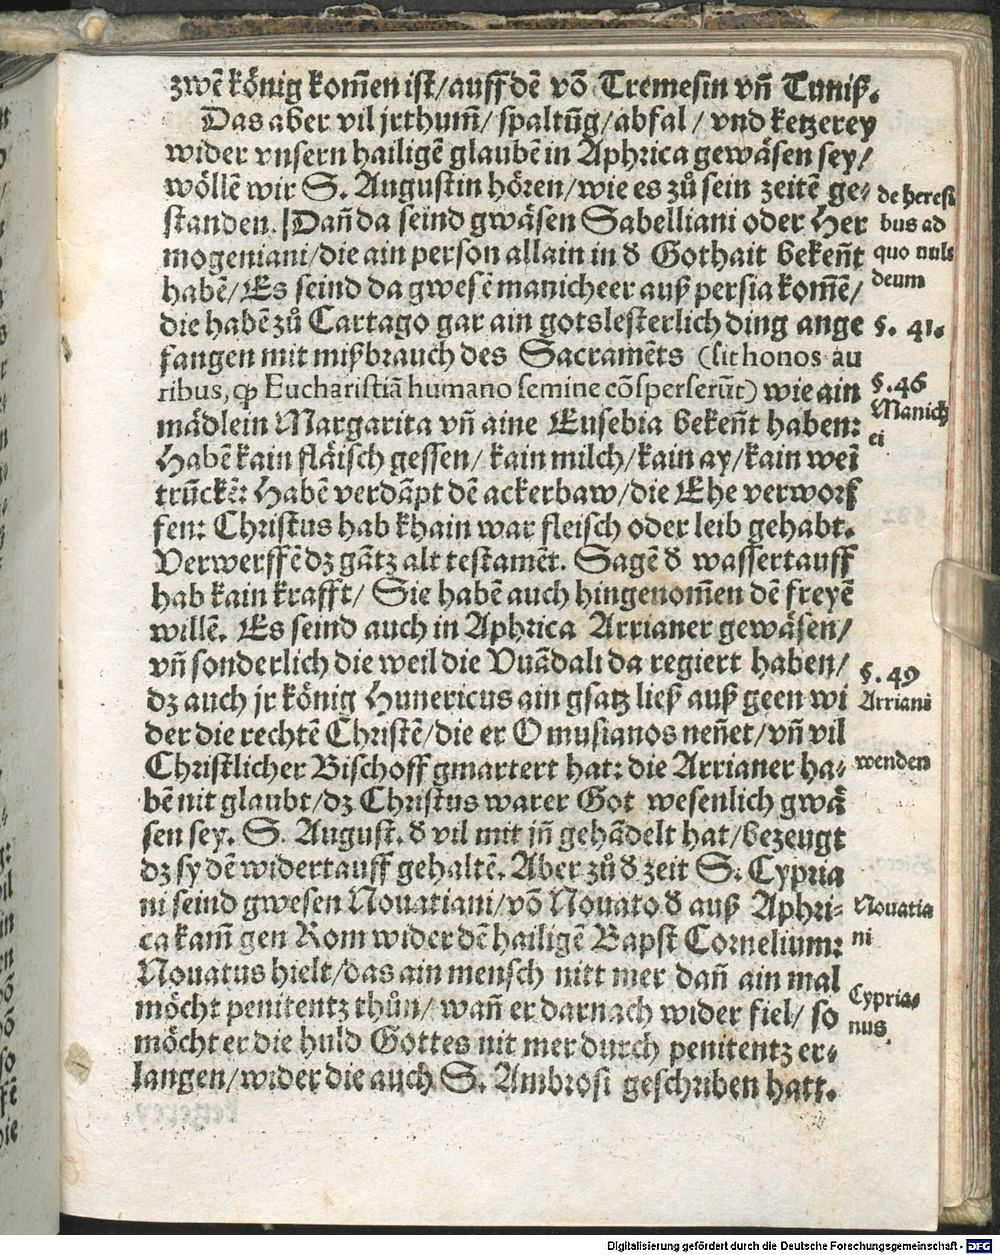 zwē künig kom̄en ist/auff dē vō Tremesin vn̄ Tuniß.
Das aber vil jrthum̄/ spaltūg/abfal/ vnd ketzerey
wider vnsern hailigē glaubē in Aphrica gewäsen sey/
wöllē wir S. Augustin hören/wie es zů sein zeitē ge⸗
standen. Dan̄ da seind gwäsen Sabelliani oder Her
mogeniani/die ain person allain in d̄ Gothait beken̄t
habē/Es seind da gwesē manicheer auß persia kom̄ē/
die habē zů Cartago gar ain gotslesterlich ding ange
fangen mit mißbrauch des Sacramēts (sit honos au
ribus, ꝙ Eucharistiā humano semine cōsperserūt) wie ain
mädlein Margarita vn̄ aine Eusebia beken̄t haben:
Habē kain fläisch gessen/ kain milch/kain ay/kain weī
trūckē: Habē verdāpt dē ackerbaw/die Ehe verworf
fen: Christus hab khain war fleisch oder leib gehabt.
Verwerffē dz gātz alt testamēt. Sagē d̄ wassertauff
hab kain krafft/ Sie habē auch hingenom̄en dē freyē
willē. Es seind auch in Aphrica Arrianer gewäsen/
vn̄ sonderlich die weil die Vuādali da regiert haben/
dz auch jr künig Hunericus ain gsatz ließ auß geen wi
der die rechtē Christē/die er Omusianos nen̄et/vn̄ vil
Christlicher Bischoff gmartert hat: die Arrianer ha⸗
bē nit glaubt/dz Christus warer Got wesenlich gwä
sen sey. S. August. d̄ vil mit jn̄ gehādelt hat/bezeugt
dz sy dē widertauff gehaltē. Aber zů d̄ zeit S. Cypria
ni seind gwesen Nouatiani/vō Nouato d̄ auß Aphri⸗
ca kam̄ gen Rom wider dē hailigē Bapst Cornelium:
Nouatus hielt/das ain mensch nitt mer dan̄ ain mal
möcht penitentz thůn/ wan̄ er darnach wider fiel/ so
möcht er die huld Gottes nit mer durch penitentz er⸗
langen/wider die auch S. Ambrosi geschriben hatt.
de heresi
bus ad
quo nult
deum
§. 41.
§. 46
Manich
ei
§. 49
Arriani
wenden
Nouatia
ni
Cypria⸗
nus.
Digitalisierung gefördert durch die Deutsche Forschungsgemeinschaft - DFG